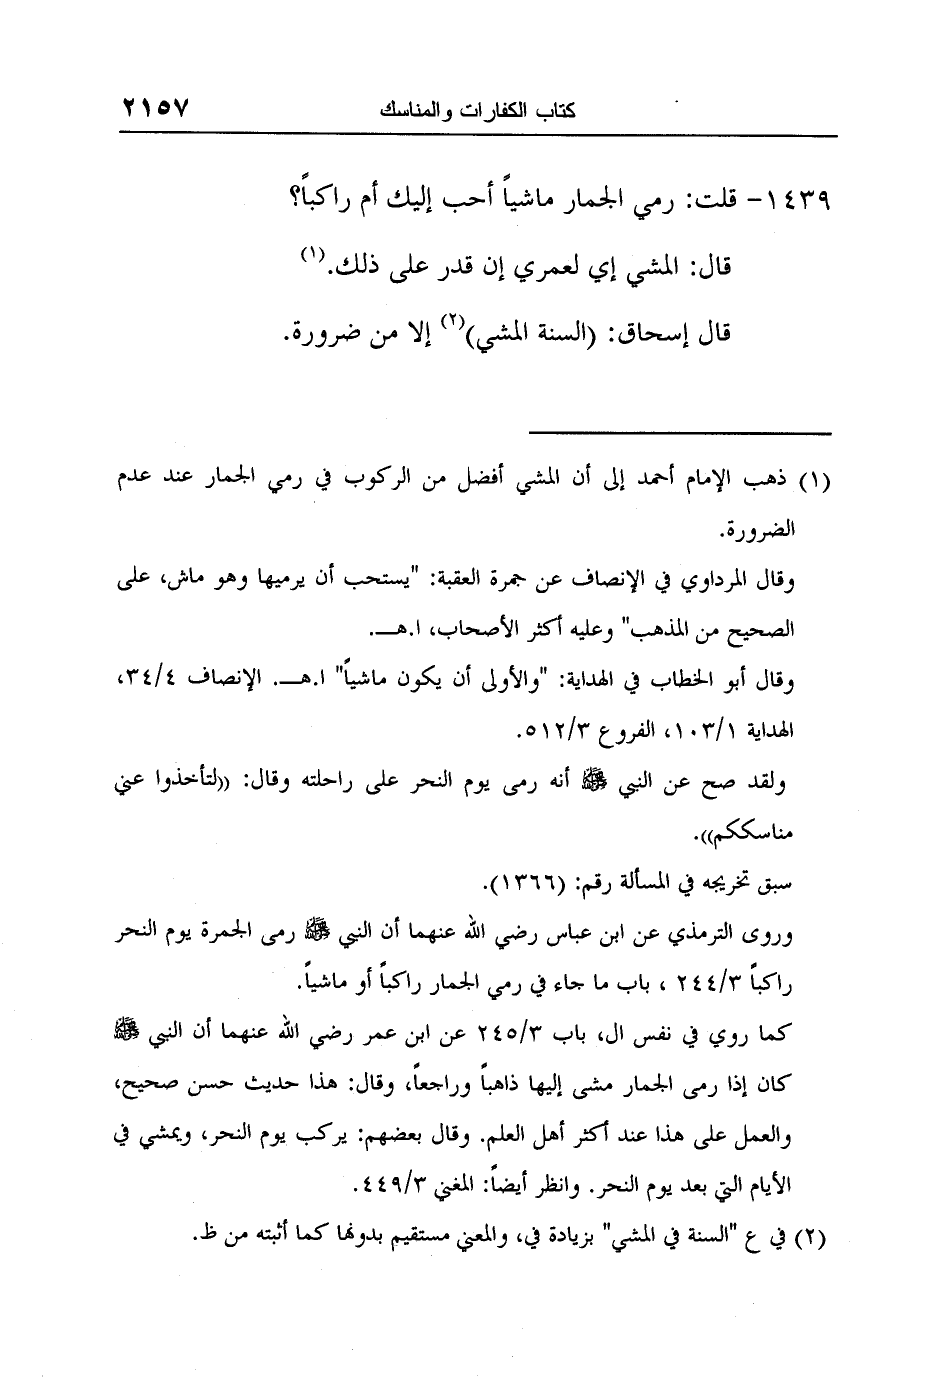 ٢١٥٧ كتاب الكفارات والمناسك
١٤٣٩- قلت: رمي الجمار ماشياً أحب إليك أم راكباً؟
قال: المشي إي لعمري إن قدر على ذلك.(١)
قال إسحاق: (السنة المشي)(٢) إلا من ضرورة.
(١) ذهب الإمام أحمد إلى أن المشي أفضل من الركوب في رمي الجمار عند عدم
الضرورة.
وقال المرداوي في الإنصاف عن جمرة العقبة: "يستحب أن يرميها وهو ماش، على
الصحيح من المذهب" وعليه أكثر الأصحاب، ا.هـ.
وقال أبو الخطاب في الهداية: "والأولى أن يكون ماشياً" ا.هـ. الإنصاف ٣٤/٤،
الهداية ١٠٣/١، الفروع ٥١٢/٣.
ولقد صح عن النبي ﷺ أنه رمى يوم النحر على راحلته وقال: ((لتأخذوا عني
مناسككم)).
سبق تخريجه في المسألة رقم: (١٣٦٦).
وروى الترمذي عن ابن عباس رضي الله عنهما أن النبي ﷺ رمى الجمرة يوم النحر
راكباً ٢٤٤/٣ ، باب ما جاء في رمي الجمار راكباً أو ماشياً.
كما روي في نفس ال، باب ٢٤٥/٣ عن ابن عمر رضي الله عنهما أن النبي ﷺ
كان إذا رمى الجمار مشى إليها ذاهباً وراجعاً، وقال: هذا حديث حسن صحيح،
والعمل على هذا عند أكثر أهل العلم. وقال بعضهم: يركب يوم النحر، ويمشي في
الأيام التي بعد يوم النحر. وانظر أيضاً: المغني ٤٤٩/٣.
(٢) في ع "السنة في المشي" بزيادة في، والمعني مستقيم بدونها كما أثبته من ظ.